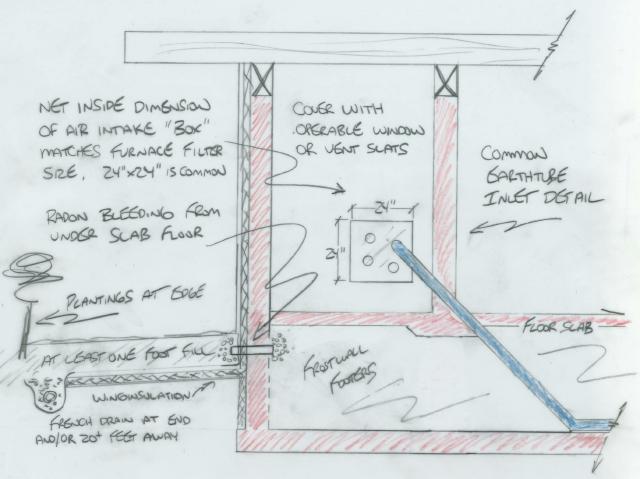 NET INSIDE DIMENSION
OF AIR INTAKE "BOX"
MATCHES FURNACE FILTER
SIZE, 24"x24" IS COMMON
COVER WITH
OPERABLE WINDOW
OR VENT SLATS
COMMON
EARTHTUBE
INLET DETAIL
24"
24"
RADON BLEEDING FROM
UNDER SLAB FLOOR
PLANTINGS AT EDGE
AT LEAST ONE FOOT FILL
FLOOR SLAB
FROSTWALL
FOOTERS
WINGINSULATION
FRENCH DRAIN AT END
AND/OR 20+ FEET AWAY